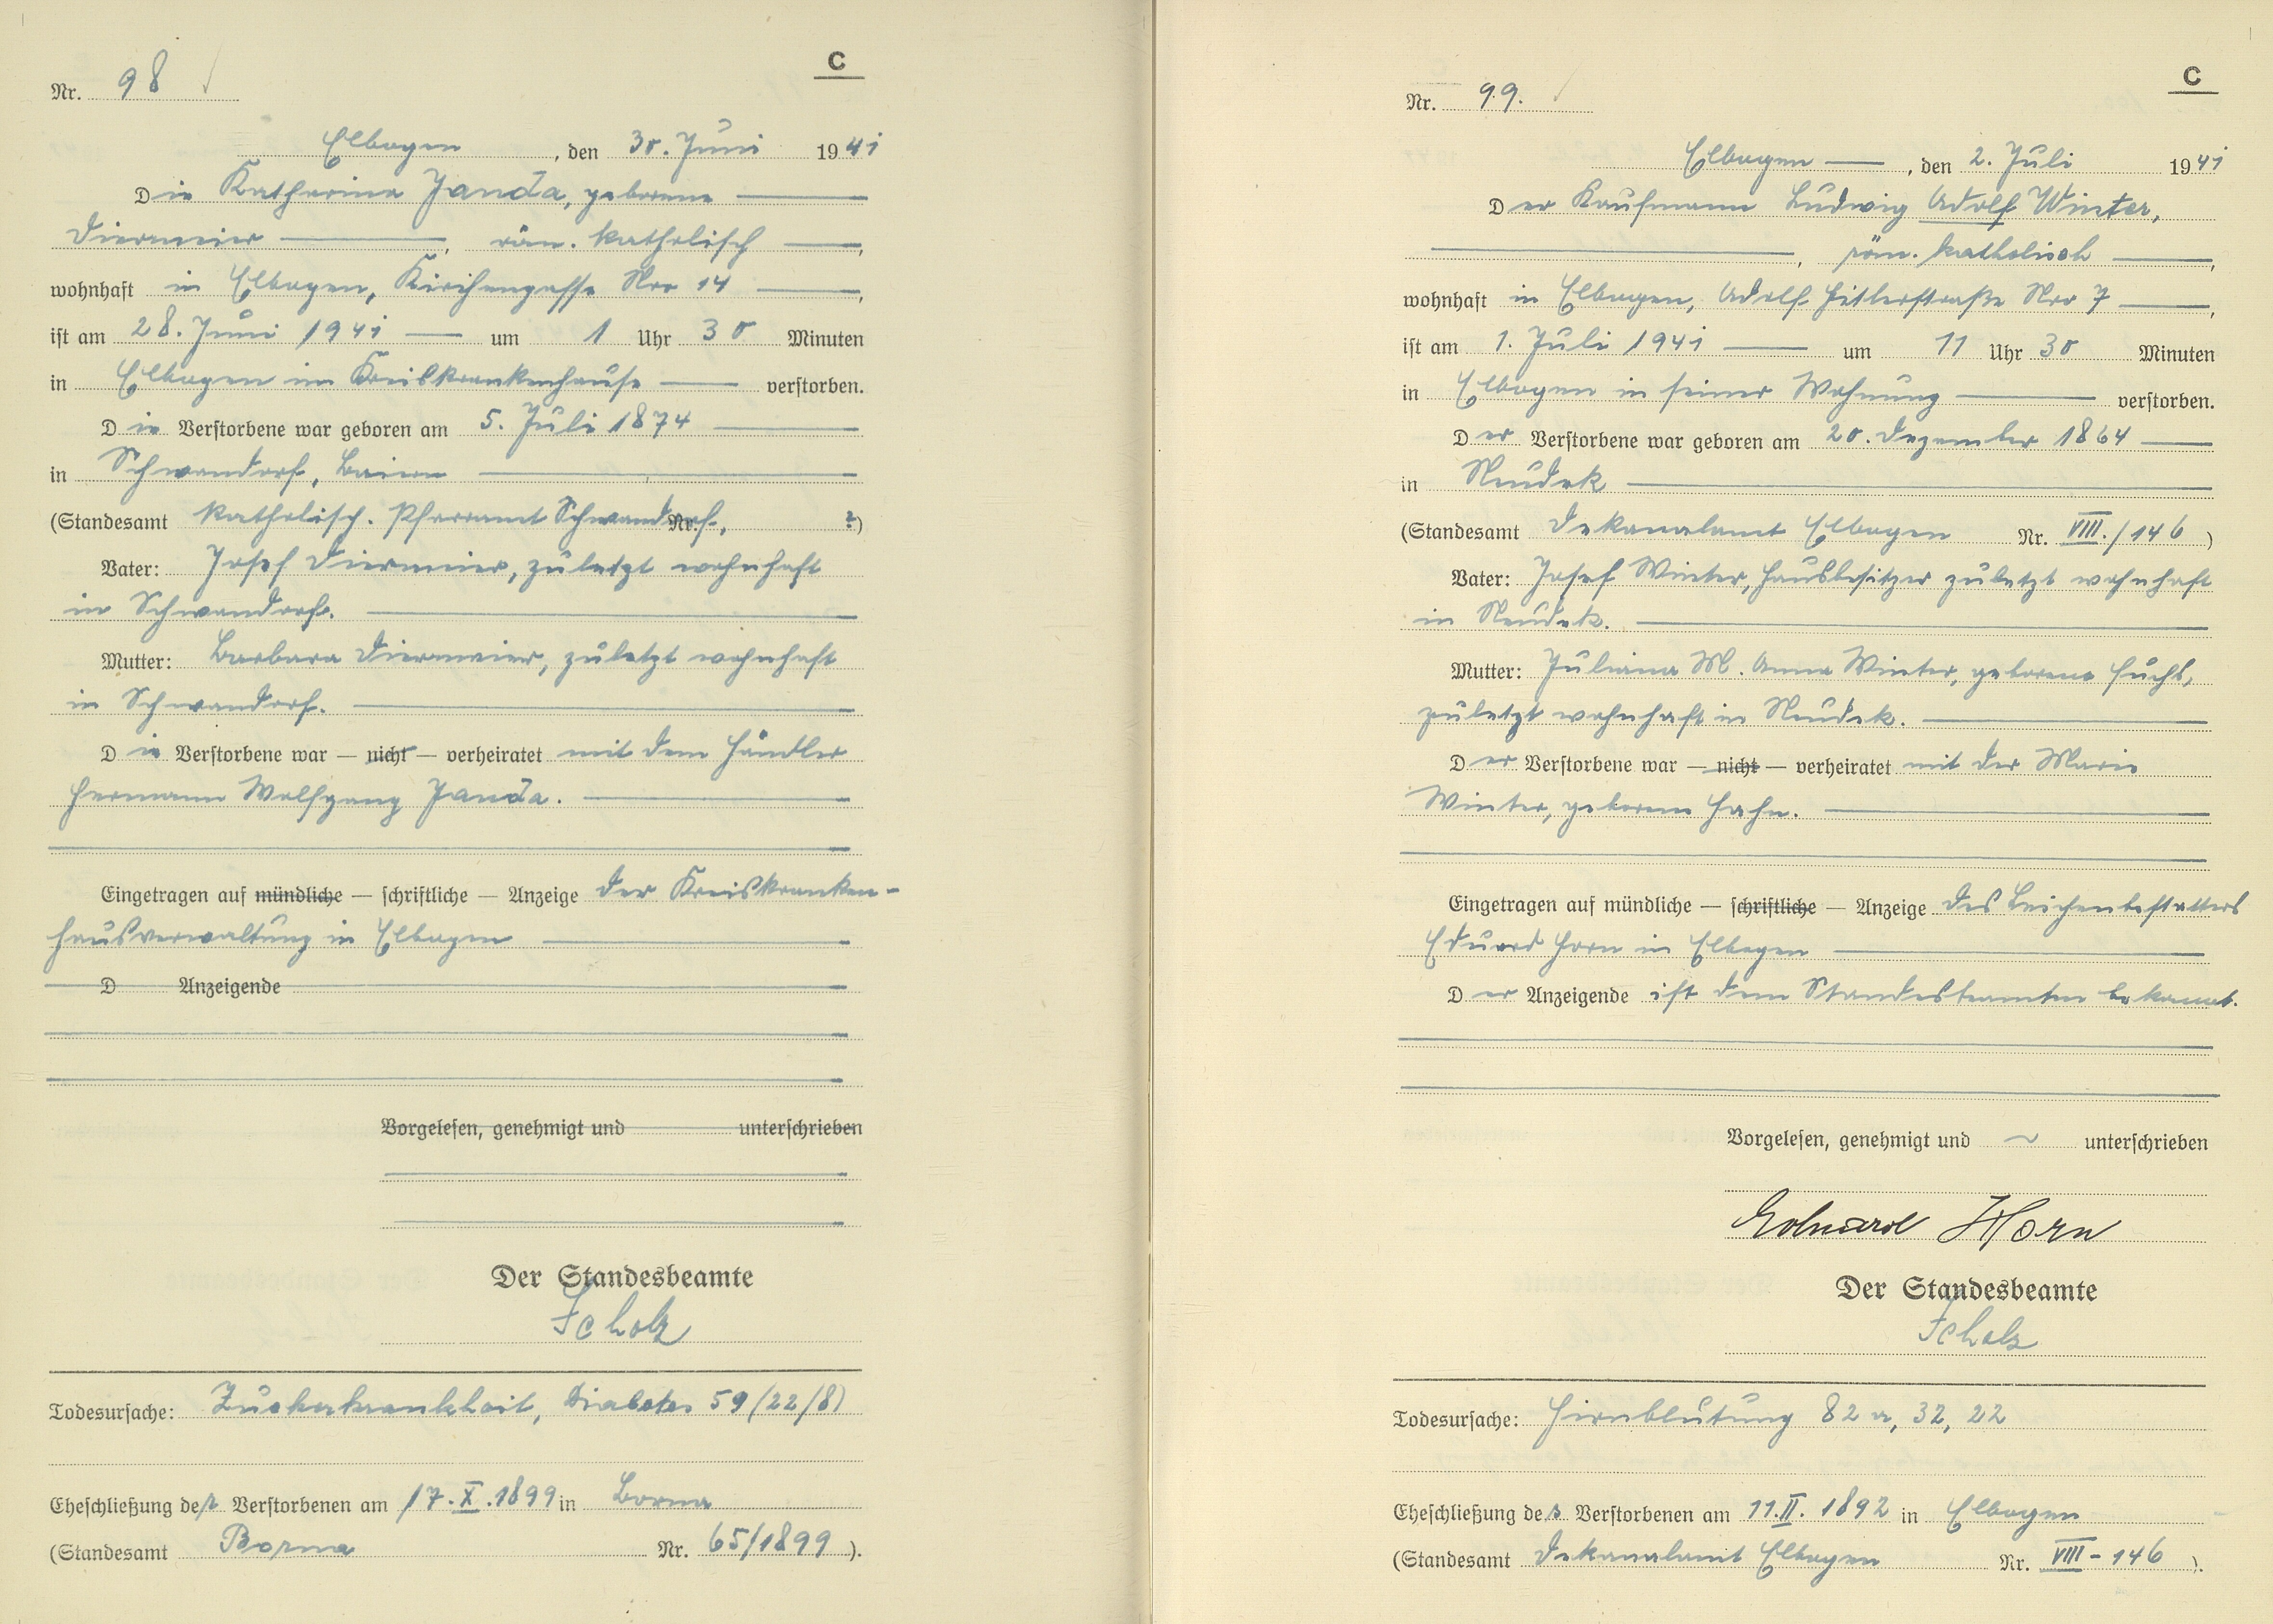 C
Nr. 98
Elbogen, den 30. Juni 1941
Die Katharina Janda, geborene
Diermeier, röm. katholisch,
wohnhaft in Elbogen, Kirchengasse Nro 14,
ist am 28. Juni 1941 um 1 Uhr 30 Minuten
in Elbogen im Kreiskrankenhause verstorben.
Die Verstorbene war geboren am 5. Juli 1874
in Schwandorf, Baiern
(Standesamt katholisch. Pfarramt Schwandorf, Nr. ?)
Vater: Josef Diermeier, zuletzt wohnhaft
in Schwandorf.
Mutter: Barbara Diermeier, zuletzt wohnhaft
in Schwandorf.
Die Verstorbene war — nicht — verheiratet mit dem Händler
Hermann Wolfgang Janda.
Eingetragen auf mündliche — schriftliche — Anzeige der Kreiskranken-
hausverwaltung in Elbogen
D Anzeigende
Vorgelesen, genehmigt und unterschrieben
Der Standesbeamte
Scholz
Todesursache: Zuckerkrankheit, Diabetes 59 (22/8)
Eheschließung der Verstorbenen am 17.X.1899 in Borna
(Standesamt Borna Nr. 65/1899).
C
Nr. 99.
Elbogen, den 2. Juli 1941
Der Kaufmann Ludwig Adolf Winter,
, röm. katholisch,
wohnhaft in Elbogen, Adolf Hitlerstraße Nro 7,
ist am 1. Juli 1941 um 11 Uhr 30 Minuten
in Elbogen in seiner Wohnung verstorben.
Der Verstorbene war geboren am 20. Dezember 1864
in Neudek
(Standesamt Dekanalamt Elbogen Nr. VIII./146)
Vater: Josef Winter, Hausbesitzer zuletzt wohnhaft
in Neudek.
Mutter: Juliana M. Anna Winter, geborene Fuchs,
zuletzt wohnhaft in Neudek.
Der Verstorbene war — nicht — verheiratet mit der Marie
Winter, geborene Hahn.
Eingetragen auf mündliche — schriftliche — Anzeige des Leichenbestatters
Eduard Horn in Elbogen
Der Anzeigende ist dem Standesbeamten bekannt.
Vorgelesen, genehmigt und unterschrieben
Eduard Horn
Der Standesbeamte
Scholz
Todesursache: Hirnblutung 82 a, 32, 22
Eheschließung des Verstorbenen am 11.II.1892 in Elbogen
(Standesamt Dekanalamt Elbogen Nr. VIII-146).